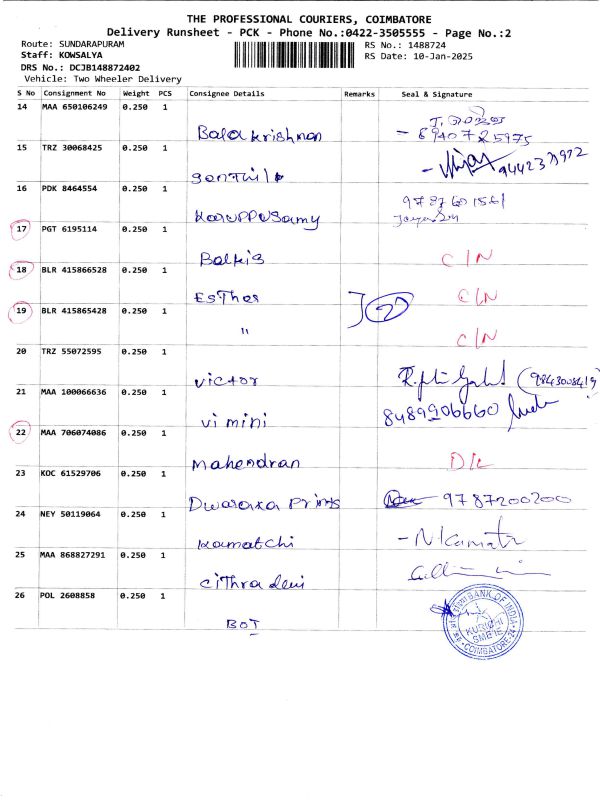 THE PROFESSIONAL COURIERS, COIMBATORE
Delivery Runsheet - PCK - Phone No.:0422-3505555 - Page No.:2
Route: SUNDARAPURAM
RS No.: 1488724
Staff: KOWSALYA
RS Date: 10-Jan-2025
DRS No.: DCJB148872402
Vehicle: Two Wheeler Delivery
S No Consignment No Weight PCS Consignee Details Remarks Seal & Signature
14 MAA 650106249 0.250 1
Balakrishnan - 8940725975
15 TRZ 30068425 0.250 1
Senthil
16 PDK 8464554 0.250 1
Karuppusamy
17 PGT 6195114 0.250 1
Balkis C/N
18 BLR 415866528 0.250 1
Esther C/N
19 BLR 415865428 0.250 1
" C/N
20 TRZ 55072595 0.250 1
Victor 9843008419
21 MAA 100066636 0.250 1
Vi mini 8489906660
22 MAA 706074086 0.250 1
Mahendran D/L
23 KOC 61529706 0.250 1
Dwaraka Prints 9787200200
24 NEY 50119064 0.250 1
Kamatchi
25 MAA 868827291 0.250 1
Cithra devi
26 POL 2608858 0.250 1
BOI
BANK OF INDIA
KURICHI
COIMBATORE-24